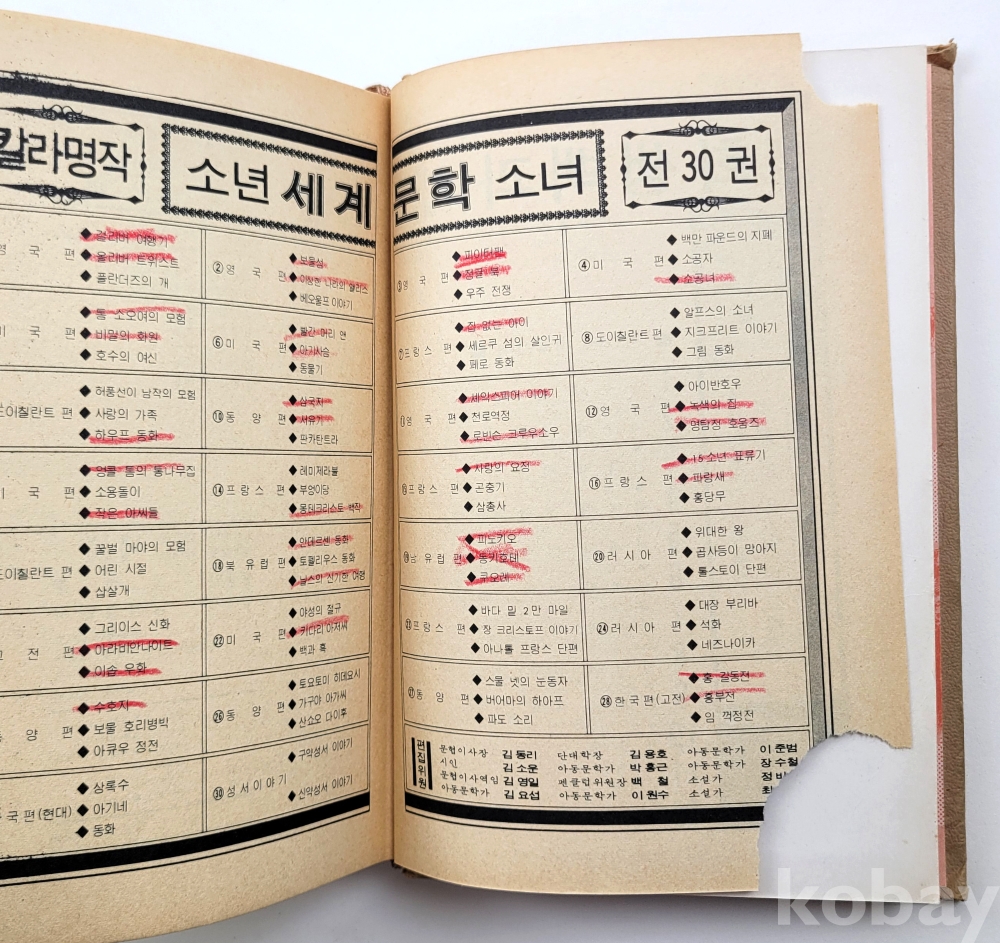 칼라명작 소년 세계 문학 소녀 전 30 권
영 국 편
◆ 걸리버 여행기
◆ 올리버 트위스트
◆ 플란더즈의 개
②영 국 편
◆ 보물섬
◆ 이상한 나라의 앨리스
◆ 베오울프 이야기
③영 국 편
◆ 피이터팬
◆ 정글 북
◆ 우주 전쟁
④미 국 편
◆ 백만 파운드의 지폐
◆ 소공자
◆ 소공녀
미 국 편
◆ 톰 소오여의 모험
◆ 비밀의 화원
◆ 호수의 여신
⑥미 국 편
◆ 빨간 머리 앤
◆ 아기사슴
◆ 동물기
⑦프랑스 편
◆ 집 없는 아이
◆ 세르쿠 섬의 살인귀
◆ 페로 동화
⑧도이칠란트편
◆ 알프스의 소녀
◆ 지크프리트 이야기
◆ 그림 동화
도이칠란트 편
◆ 허풍선이 남작의 모험
◆ 사랑의 가족
◆ 하우프 동화
⑩동 양 편
◆ 삼국지
◆ 서유기
◆ 판카탄트라
영 국 편
◆ 셰익스피어 이야기
◆ 천로역정
◆ 로빈슨 크루우소우
⑫영 국 편
◆ 아이반호우
◆ 녹색의 집
◆ 명탐정 호움즈
국 편
◆ 엉클 톰의 통나무집
◆ 소웅돌이
◆ 작은 아씨들
⑭프랑스 편
◆ 레미제라블
◆ 부엉이당
◆ 몽테크리스토 백작
프랑스 편
◆ 사랑의 요정
◆ 곤충기
◆ 삼총사
⑯프랑스 편
◆ 15소년 표류기
◆ 파랑새
◆ 홍당무
도이칠란트 편
◆ 꿀벌 마야의 모험
◆ 어린 시절
◆ 삽살개
⑱북 유럽 편
◆ 안데르센 동화
◆ 토펠리우스 동화
◆ 닐스의 신기한 여행
⑲남 유럽 편
◆ 피노키오
◆ 동키호테
◆ 쿠오레
⑳러시아 편
◆ 위대한 왕
◆ 곱사등이 망아지
◆ 톨스토이 단편
고 전 편
◆ 그리이스 신화
◆ 아라비안나이트
◆ 이솝 우화
㉒미 국 편
◆ 야성의 절규
◆ 키다리 아저씨
◆ 백과 흑
㉓프랑스 편
◆ 바다 밑 2만 마일
◆ 장 크리스토프 이야기
◆ 아나톨 프랑스 단편
㉔러시아 편
◆ 대장 부리바
◆ 석화
◆ 네즈나이카
동 양 편
◆ 수호지
◆ 보물 호리병박
◆ 아큐우 정전
㉖동 양 편
◆ 토요토미 히데요시
◆ 가구야 아가씨
◆ 산쇼오 다이후
㉗동 양 편
◆ 스물 넷의 눈동자
◆ 버어마의 하아프
◆ 파도 소리
㉘한국편(고전)
◆ 홍 길동전
◆ 흥부전
◆ 임 꺽정전
국편(현대)
◆ 상록수
◆ 아기네
◆ 동화
㉚성서이야기
◆ 구약성서 이야기
◆ 신약성서 이야기
편집위원
문협이사장 김동리 단대학장 김용호 아동문학가 이준범
시인 김소운 아동문학가 박홍근 아동문학가 장수철
문협이사역임 김영일 펜클럽위원장 백 철 소설가 정비
아동문학가 김요섭 아동문학가 이원수 소설가 최
kobay